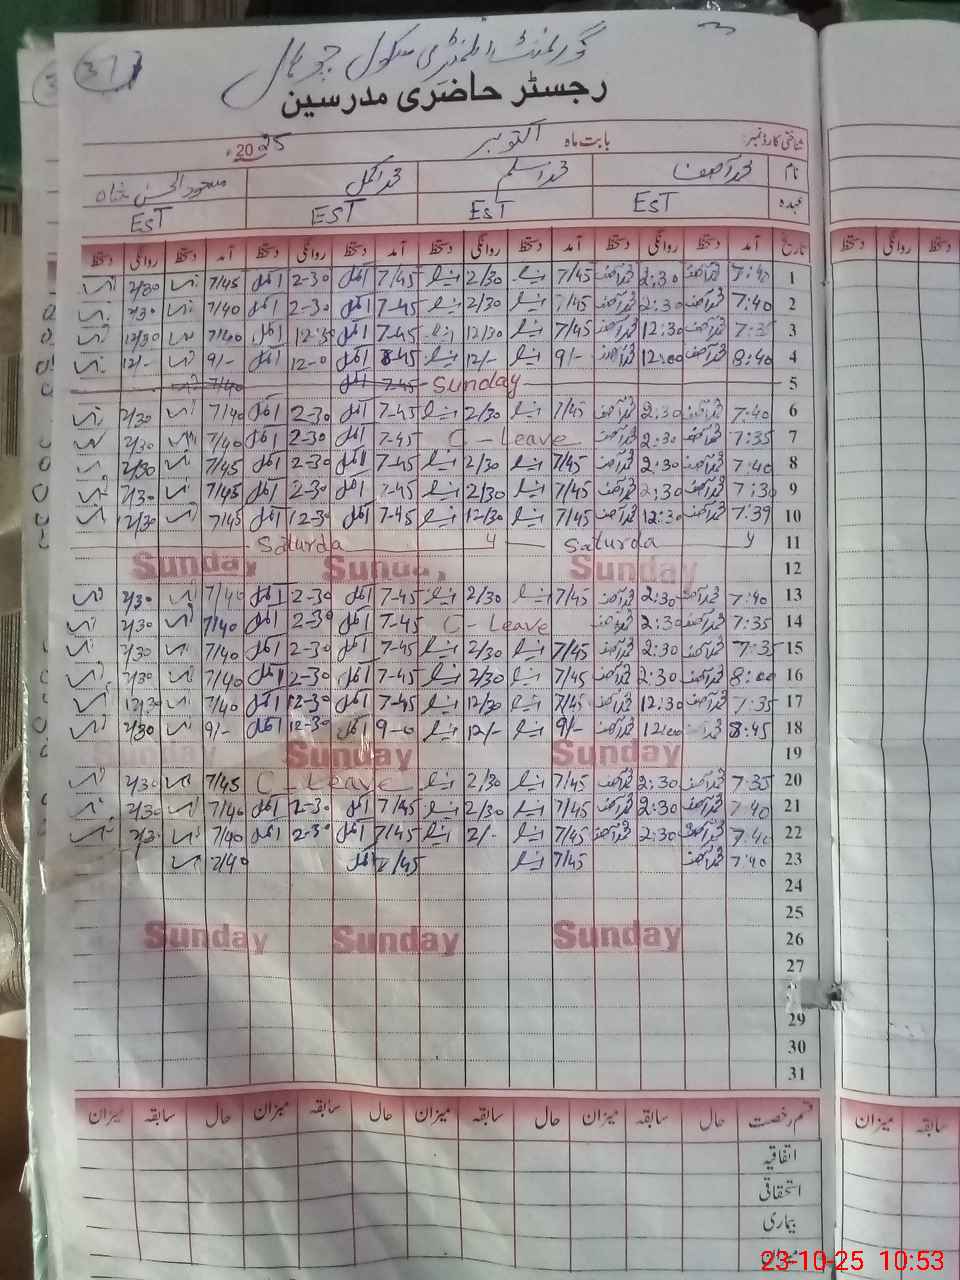 37
گورنمنٹ ایلمنٹری سکول چوہال
رجسٹر حاضری مدرسین
شناختی کارڈ نمبر: بابت ماہ اکتوبر 2025ء
نام محمد آصف محمد اسلم محمد اکمل مسعود الحسن شاہ
عہدہ EST EST EST EST
تاریخ آمد دستخط روانگی دستخط آمد دستخط روانگی دستخط آمد دستخط روانگی دستخط آمد دستخط روانگی دستخط
1 7:40 محمد آصف 2:30 محمد آصف 7/45 2/30 7/45 اکمل 2-30 اکمل 7/45 2/30
2 7:40 محمد آصف 2:30 محمد آصف 7/45 2/30 7-45 اکمل 2-30 اکمل 7/40 2/30
3 7:35 محمد آصف 12:30 محمد آصف 7/45 12/30 7-45 اکمل 12:30 اکمل 7/40 12/30
4 8:40 محمد آصف 12:00 محمد آصف 9/- 12/- 8-45 اکمل 12-0 اکمل 9/- 12/-
5 Sunday 7-45 اکمل 7/40
6 7:40 محمد آصف 2:30 محمد آصف 7/45 2/30 7-45 اکمل 2-30 اکمل 7/40 2/30
7 7:35 محمد آصف 2:30 محمد آصف C-Leave 7-45 اکمل 2-30 اکمل 7/40 2/30
8 7:40 محمد آصف 2:30 محمد آصف 7/45 2/30 7-45 اکمل 2-30 اکمل 7/45 2/30
9 7:30 محمد آصف 2:30 محمد آصف 7/45 2/30 7-45 اکمل 2-30 اکمل 7/45 2/30
10 7:39 محمد آصف 12:30 محمد آصف 7/45 12/30 7-45 اکمل 12-30 اکمل 7/45 12/30
11 Saturday Saturday
12 Sunday Sunday Sunday
13 7:40 محمد آصف 2:30 محمد آصف 7/45 2/30 7-45 اکمل 2-30 اکمل 7/40 2/30
14 7:35 محمد آصف 2:30 محمد آصف C-Leave 7-45 اکمل 2-30 اکمل 7/40 2/30
15 7:35 محمد آصف 2:30 محمد آصف 7/45 2/30 7-45 اکمل 2-30 اکمل 7/40 2/30
16 8:00 محمد آصف 2:30 محمد آصف 7/45 2/30 7-45 اکمل 2-30 اکمل 7/40 2/30
17 7:35 محمد آصف 12:30 محمد آصف 7/45 12/30 7-45 اکمل 12-30 اکمل 7/40 12/30
18 8:45 محمد آصف 12:00 محمد آصف 9/- 12/- 9-0 اکمل 12-30 اکمل 9/- 2/30
19 Sunday Sunday Sunday
20 7:35 محمد آصف 2:30 محمد آصف 7/45 2/30 C-Leave 7/45 2/30
21 7:40 محمد آصف 2:30 محمد آصف 7/45 2/30 7/45 اکمل 2-30 اکمل 7/40 2/30
22 7:40 محمد آصف 2:30 محمد آصف 7/45 2/- 7/45 اکمل 2-30 اکمل 7/40 2/30
23 7:40 محمد آصف 7/45 7/45 اکمل 7/40
24
25
26 Sunday Sunday Sunday
27
29
30
31
قسم رخصت حال سابقہ میزان حال سابقہ میزان حال سابقہ میزان حال سابقہ میزان
اتفاقیہ
استحقاقی
بیماری
دستخط روانگی دستخط
سابقہ میزان
23-10-25 10:53